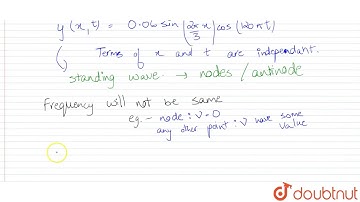 y(x,t) = 0.06 sin (2π/3 x) cos (120πt)
Terms of x and t are independant.
standing wave → nodes / antinode
Frequency will not be same
eg. - node : ν = 0
any other point : ν have some
value
doubtnut